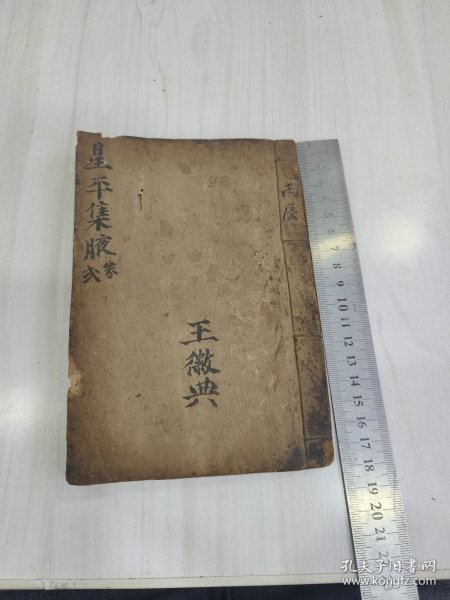 丙辰
王徽典
星平集腋
卷弍
1 2 3 4 5 6 7 8 9 10 11 12 13 14 15 16 17 18 19 20 21
孔夫子旧书网
www.kongfz.com